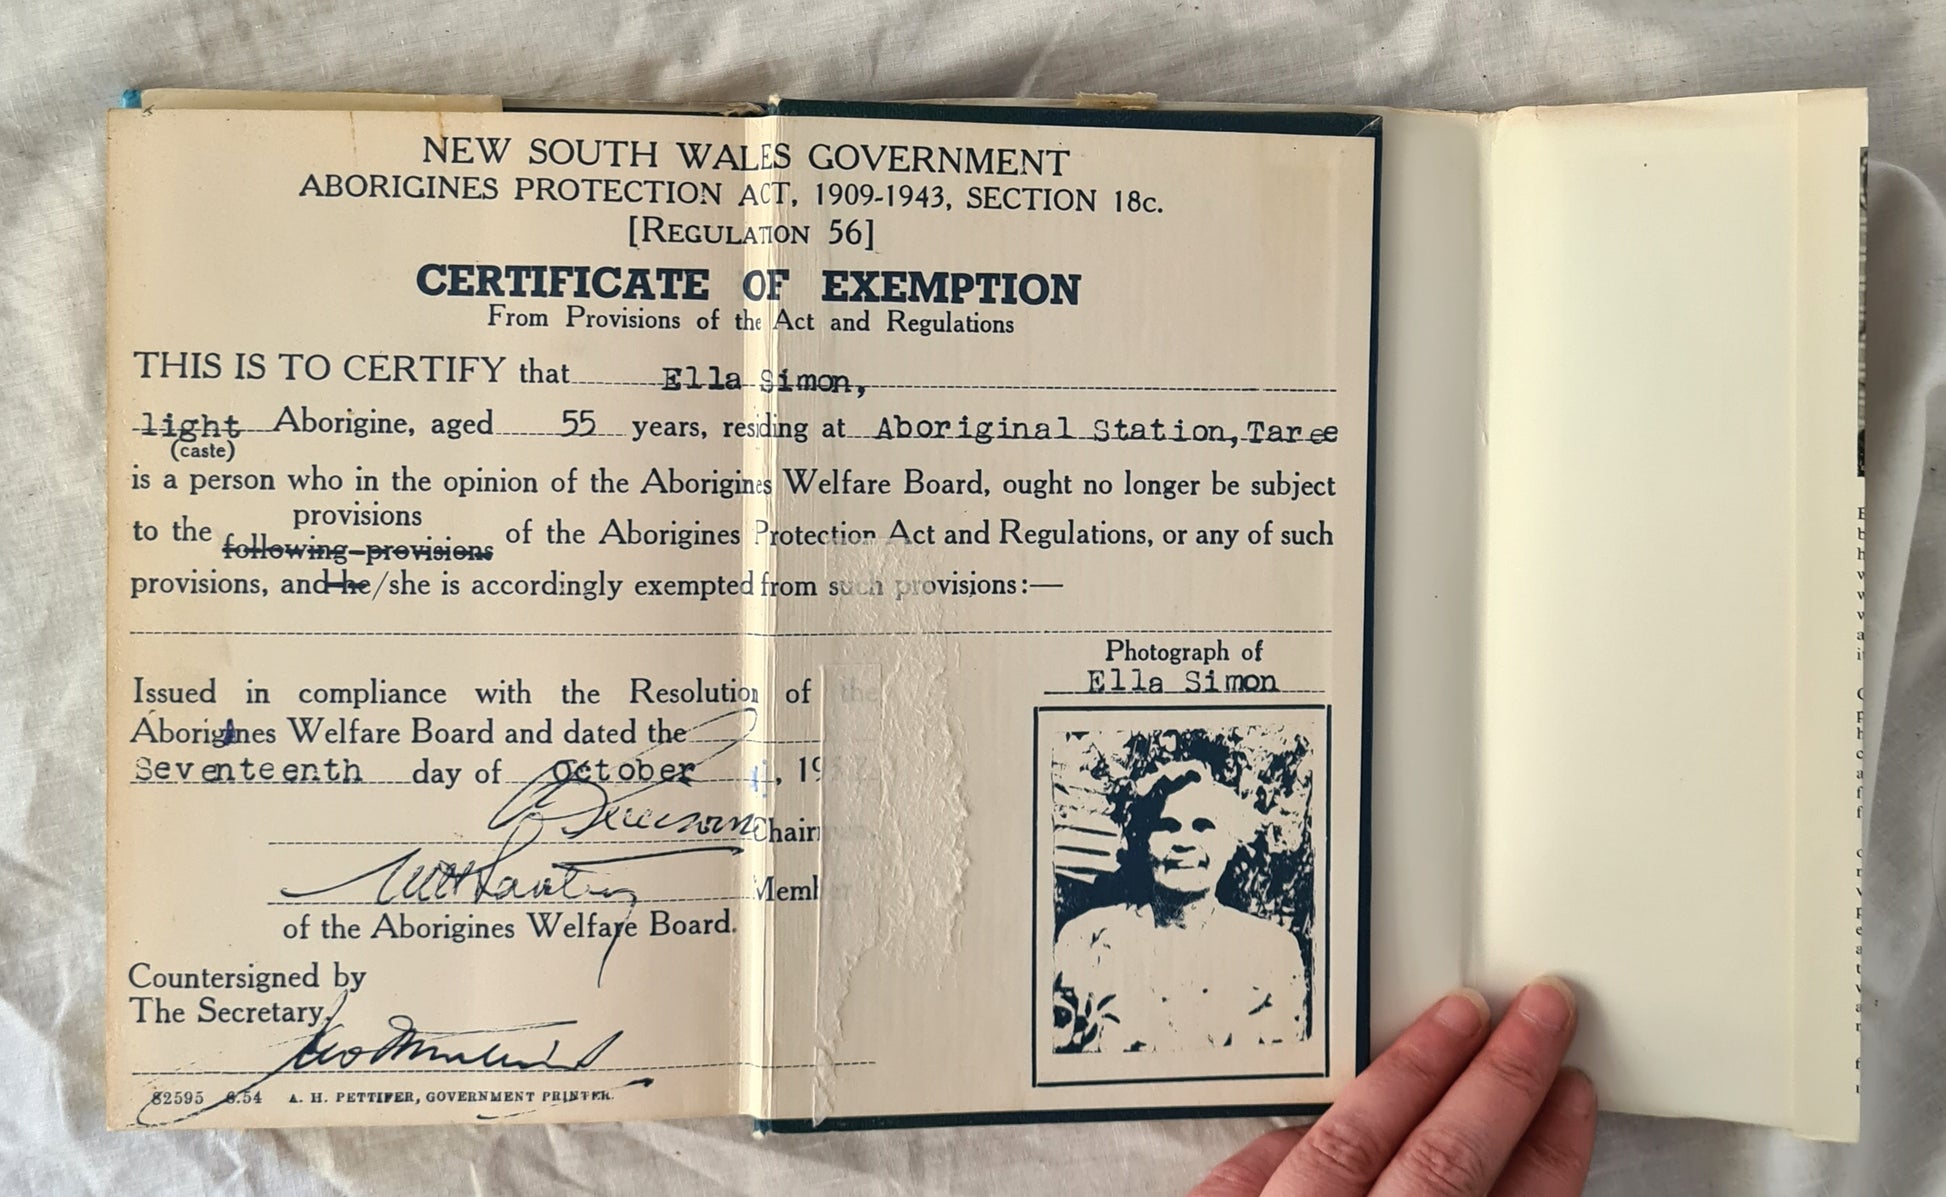 NEW SOUTH WALES GOVERNMENT
ABORIGINES PROTECTION ACT, 1909-1943, SECTION 18c.
[REGULATION 56]
CERTIFICATE OF EXEMPTION
From Provisions of the Act and Regulations
THIS IS TO CERTIFY that Ella Simon,
light Aborigine, aged 55 years, residing at Aboriginal Station, Taree
(caste)
is a person who in the opinion of the Aborigines Welfare Board, ought no longer be subject
provisions
to the following provisions of the Aborigines Protection Act and Regulations, or any of such
provisions, and he/she is accordingly exempted from such provisions:—
Photograph of
Ella Simon
Issued in compliance with the Resolution of the
Aborigines Welfare Board and dated the
Seventeenth day of October, 19
Chairman.
Member
of the Aborigines Welfare Board.
Countersigned by
The Secretary.
82595 6.54 A. H. PETTIFER, GOVERNMENT PRINTER.